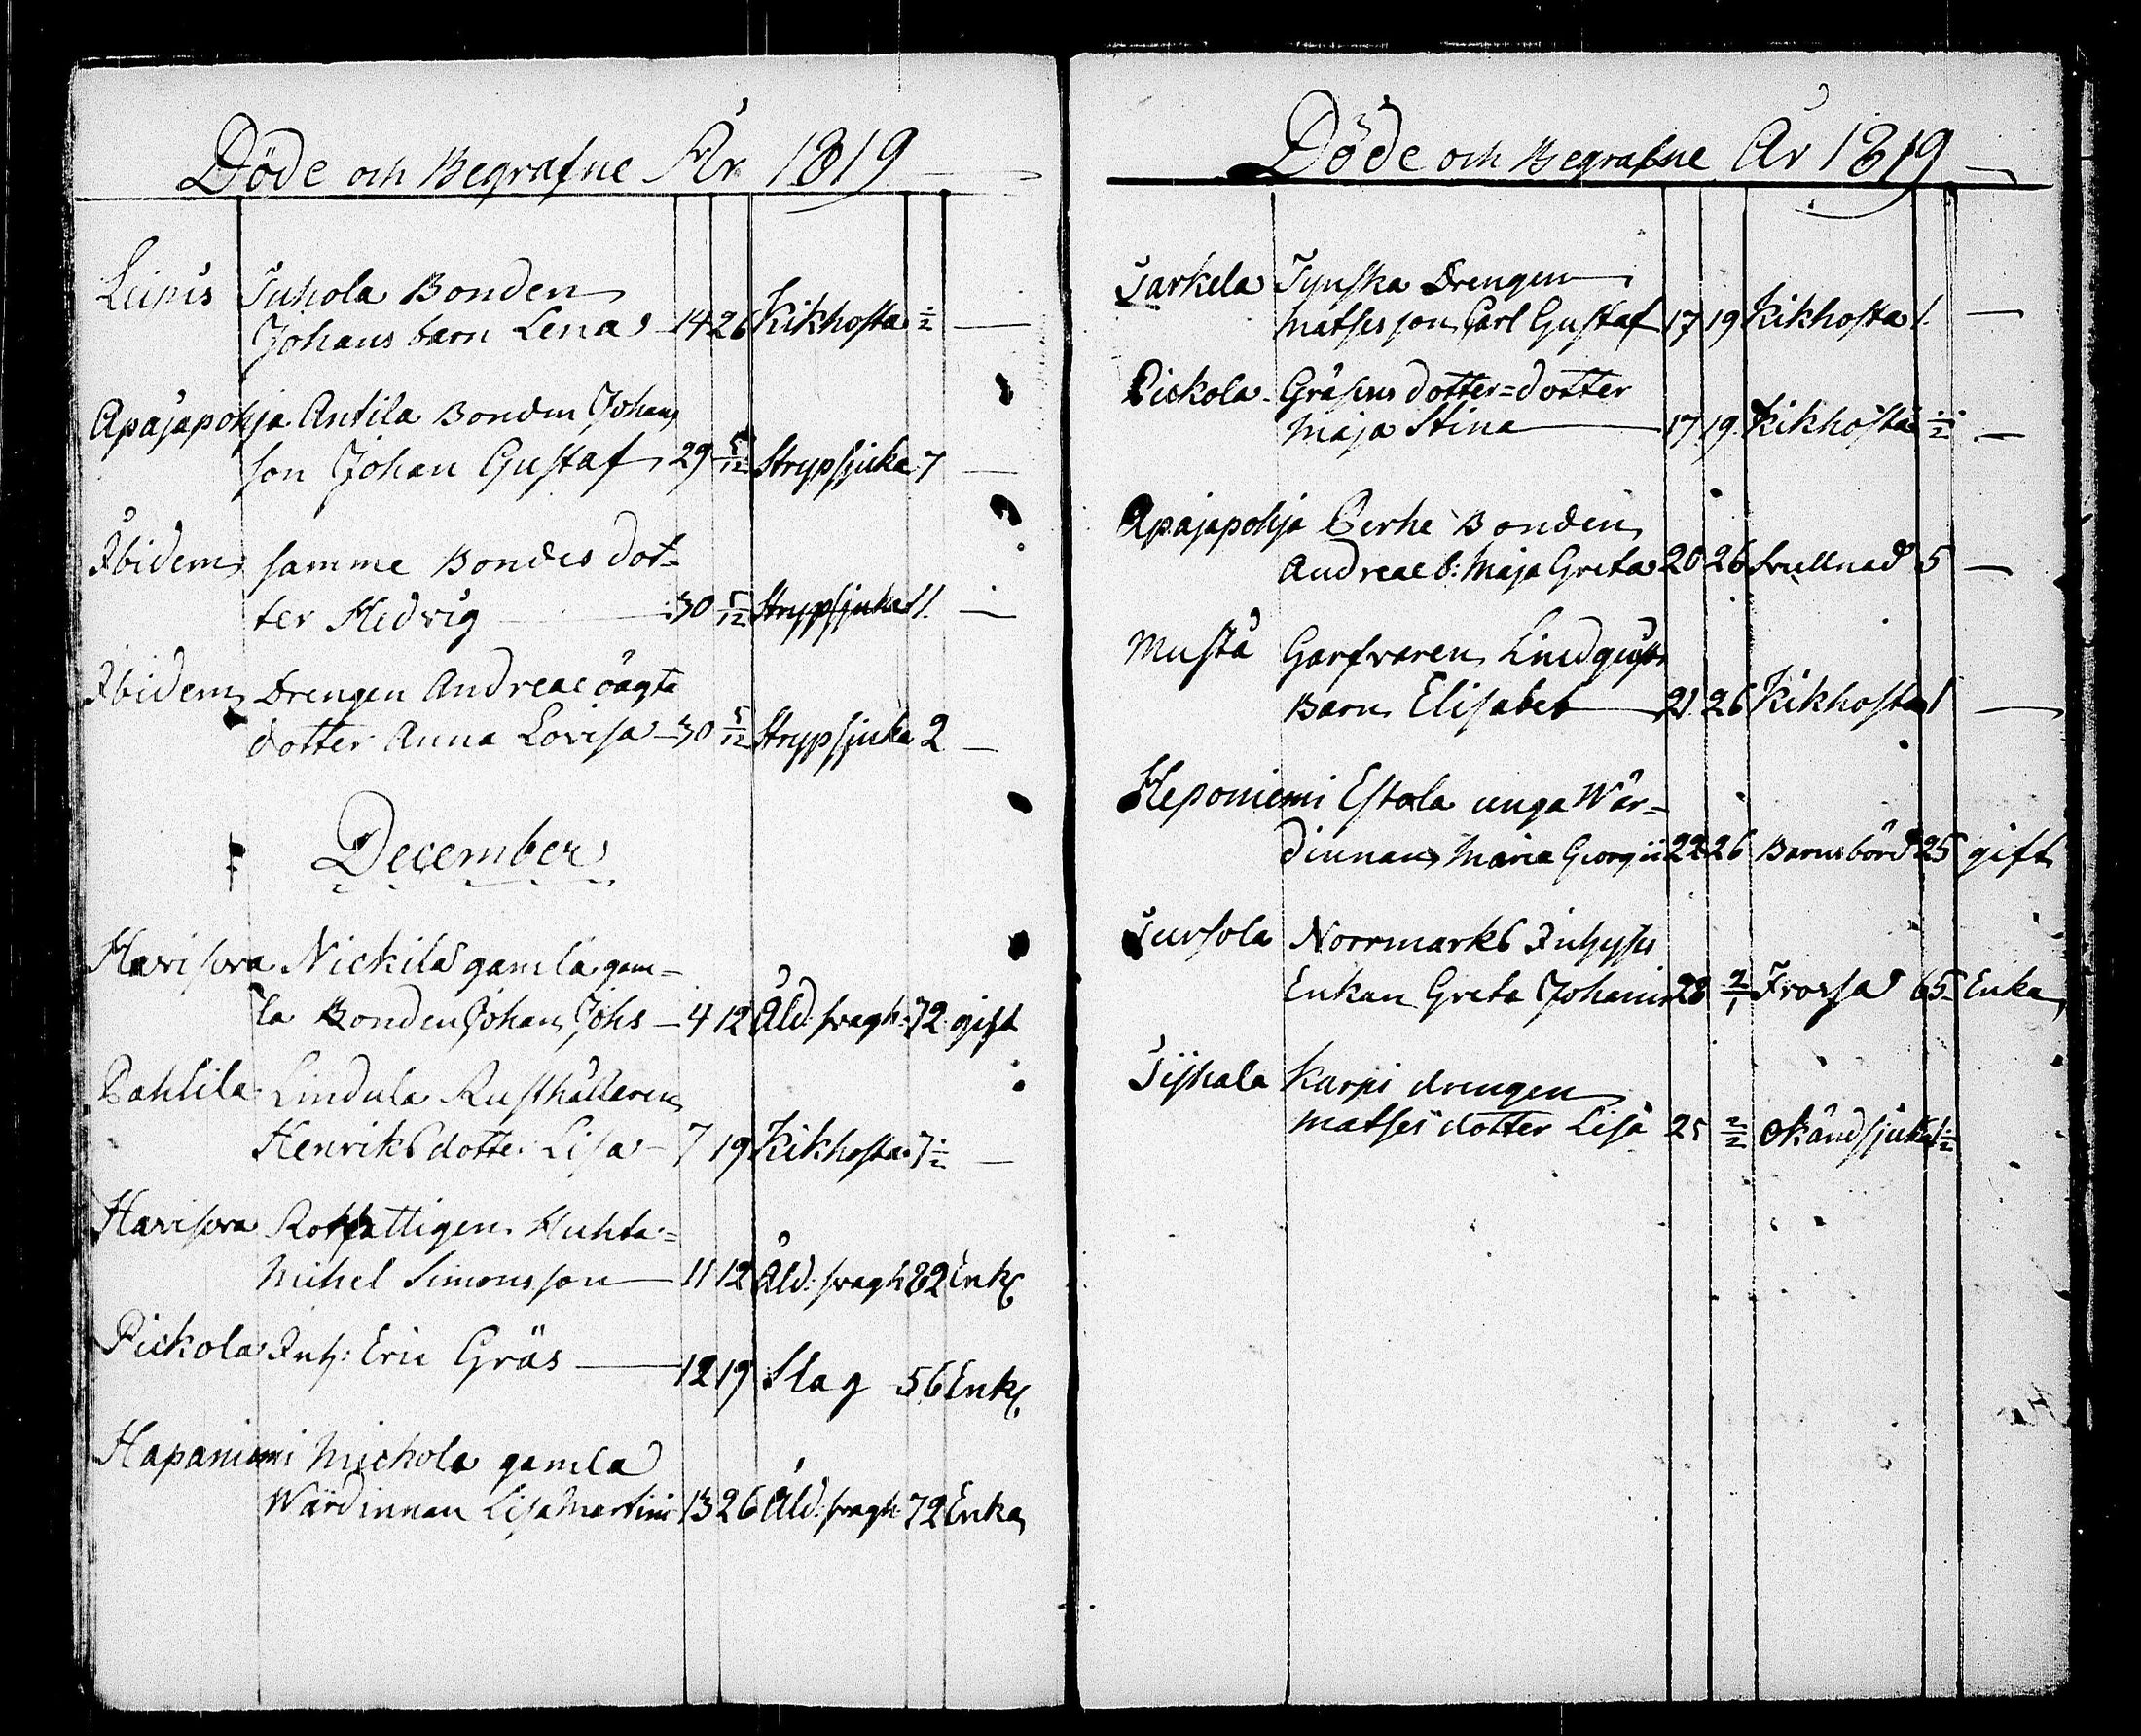 Döde och Begrafne År 1819
Leipis Juhola Bonden
Johans barn Lena 14 26 Kikhosta ½ —
Apajapohja Antila Bonden Johans
son Johan Gustaf 29 5/12 Strypsjuka 7 —
Ibidem samme Bondes dot-
ter Hedvig 30 5/12 Strypsjuka 11. —
Ibidem Drengen Andreae oägta
dotter Anna Lovisa 30 5/12 Strypsjuka 2 —
December
Harisvra Nickilä gamla gam-
la Bonden Johan Johs — 4 12 Åld: svagh: 72 gift
Pahlila Lindula Rusthållaren
Henriks dotter Lisa — 7 19 Kikhosta 7 ½ —
Harisvra Rotfattigen Huhta-
Mihel Simonsson — 11 12 Åld: svagh 82 Enkl
Pickola Inh: Eric Gräs — 12 19 Slag 56 Enkl
Hapaniemi Mickola gamla
Wärdinnan Lisa Martini 13 26 Åld: svagh: 72 Enka
Döde och Begrafne År 1819
Jarkela Tynska Drengen
Matses son Carl Gustaf 17 19 Kikhosta 1. —
Pickola Gräsens dotter=dotter
Maja Stina — 17 19 Kikhosta ½ —
Apajapohja Perhe Bonden
Andreae d: Maja Greta 20 26 Svullnad 5 —
Musta Garfvaren Lindquists
Barn Elisabet — 21 26 Kikhosta 1 —
Heponiemi Estola unga Wär-
dinnan Maria Georgii 22 26 Barnsbörd 25 gift
Sursola Norrmarks Inhyses
Enkan Greta Johanis 28 2/1 Frossa 65 Enka
Karpi drengen
Matses dotter Lisa 25 2/2 Okänd sjuka ½